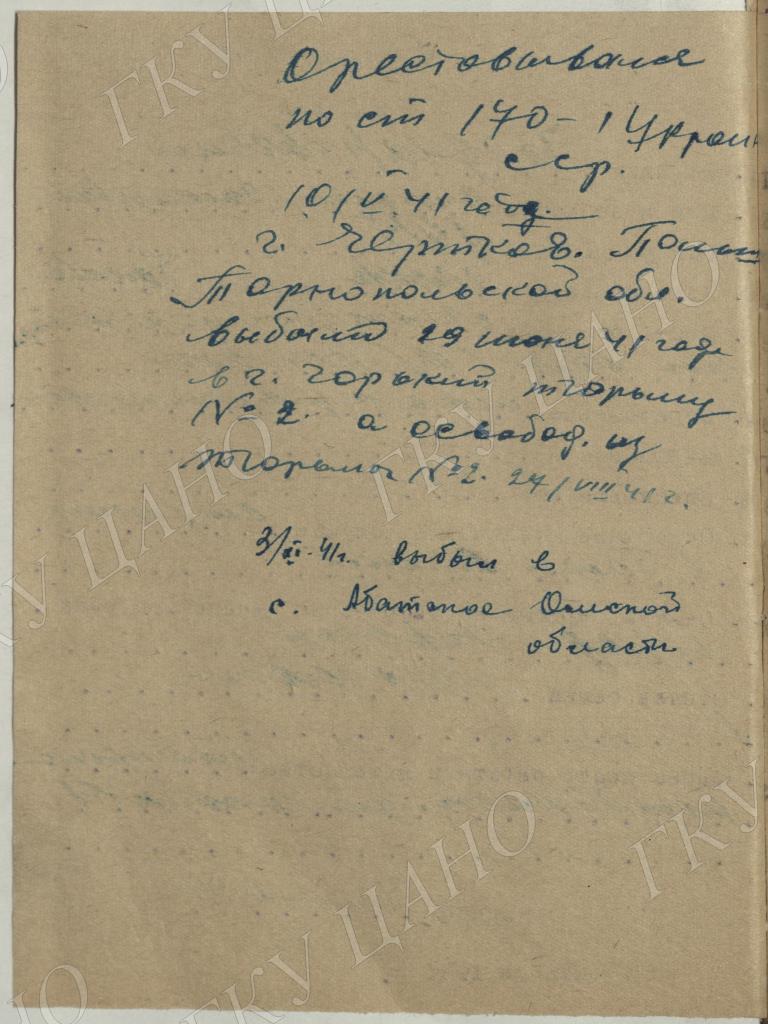 Орестовывался
по ст 170-1 Украи
сср.
10/V 41 года.
г. Чертков.
Тарнопольской обл.
выбыл 29 июня 41 года
в г. Горький тюрьму
№ 2. а освобод. из
тюрьмы №2. 27/VIII 41 г.
3/XI. 41г. выбыл в
с. Абатское Омской
области
ГКУ ЦАНО
ГКУ ЦАНО
ГКУ ЦАНО
ГКУ ЦАНО
ГКУ ЦАНО
ГКУ